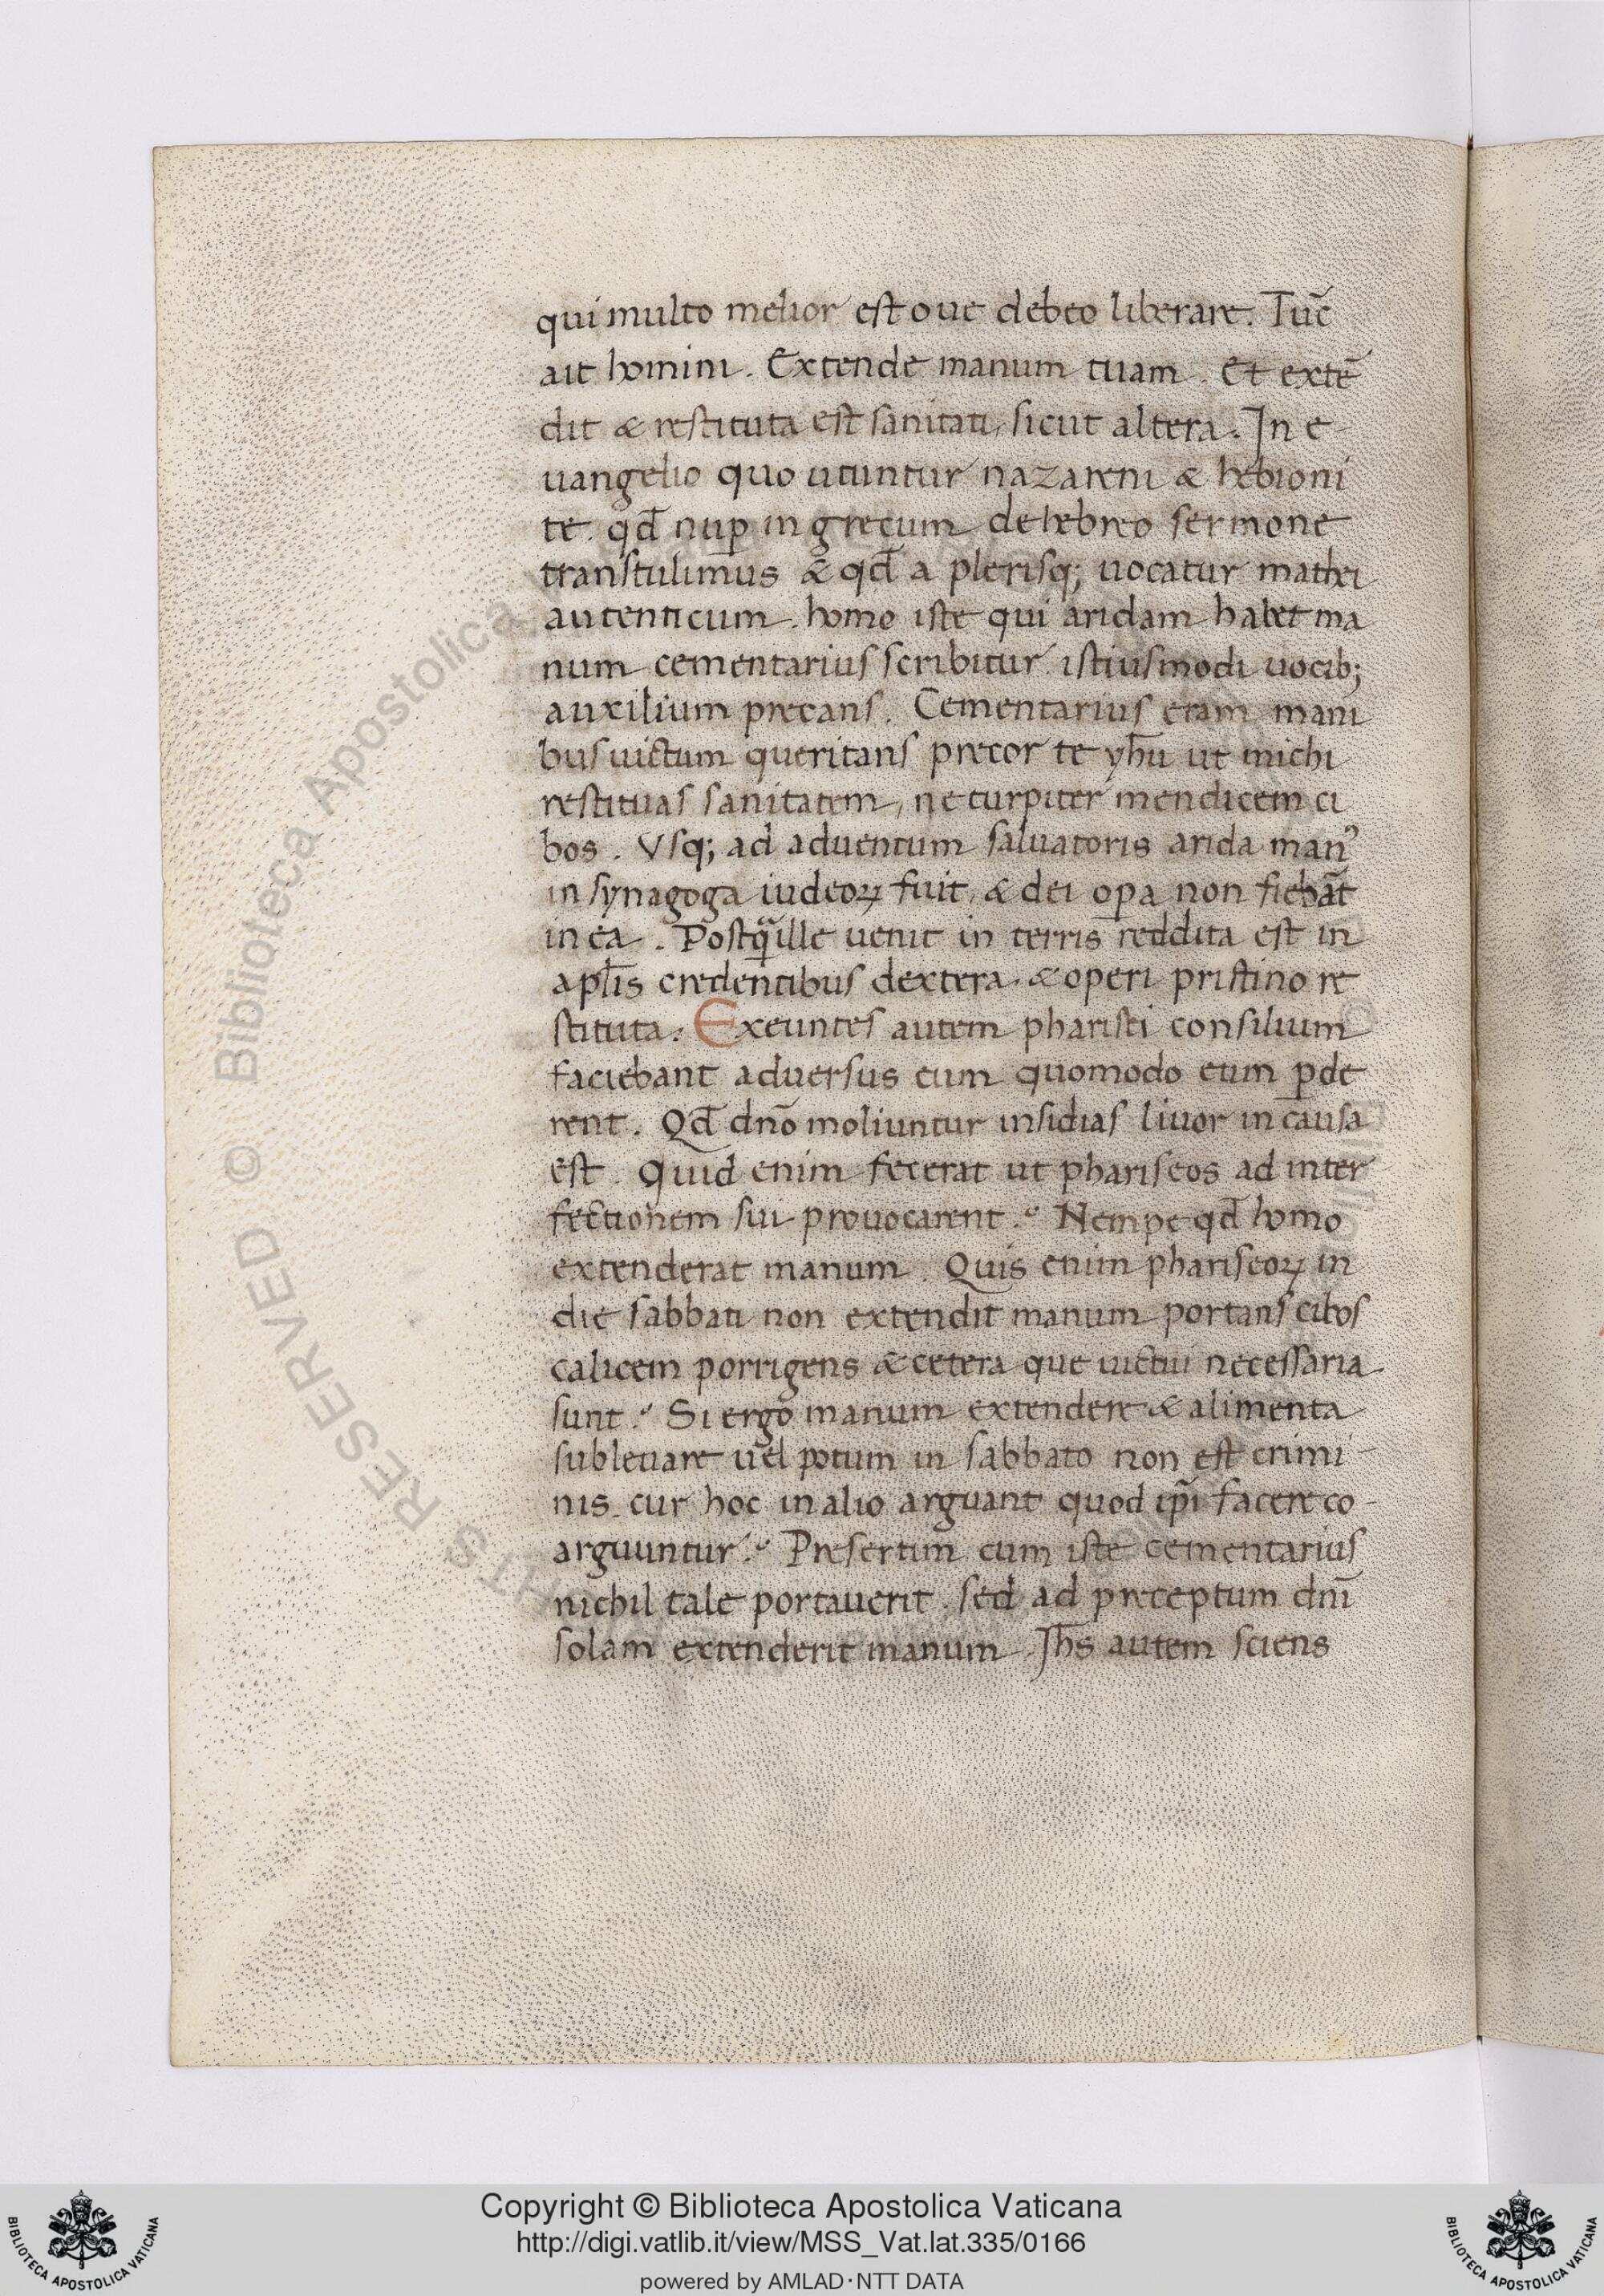 qui multo melior est oue debeo liberare. Tūc
ait homini. Extende manum tuam. Et extē
dit & restituta est sanitati, sicut altera. In e-
uangelio quo utuntur nazareni & hebioni
te. qd̄ nup̄ in grecum de hebreo sermone
transtulimus & qd̄ a plerisq; uocatur mathei
autenticum. homo iste qui aridam habet ma
num cementarius scribitur istiusmodi uocib;
auxilium precans. Cementarius eram mani
bus uictum queritans precor te yhū ut michi
restituas sanitatem, ne turpiter mendicem ci
bos. Vsq; ad aduentum saluatoris arida man᾽
in synagoga iudeoꝝ fuit, & dei oꝑa non fiebāt
in ea. Postq̄ ille uenit in terris reddita est in
apl̄is credentibus dextera. & operi pristino re
stituta. Exeuntes autem pharisei consilium
faciebant aduersus eum quomodo eum ꝑde
rent. Qd̄ dn̄o moliuntur insidias liuor in causa
est. Quid enim fecerat ut phariseos ad inter
fectionem sui prouocarent? Nempe qd̄ homo
extenderat manum. Quis enim phariseoꝝ in
die sabbati non extendit manum portans cibos
calicem porrigens & cetera que uictui necessaria
sunt? Si ergo manum extendere & alimenta
subleuare uel potum in sabbato non est crimi-
nis. cur hoc in alio arguant quod ip̄i facere co-
arguuntur? Presertim cum iste cementarius
nichil tale portauerit. sed ad preceptum dn̄i
solam extenderit manum. Jh̄s autem sciens
© Biblioteca Apostolica
RESERVED
Copyright © Biblioteca Apostolica Vaticana
http://digi.vatlib.it/view/MSS_Vat.lat.335/0166
powered by AMLAD·NTT DATA
BIBLIOTECA APOSTOLICA VATICANA
BIBLIOTECA APOSTOLICA VATICANA